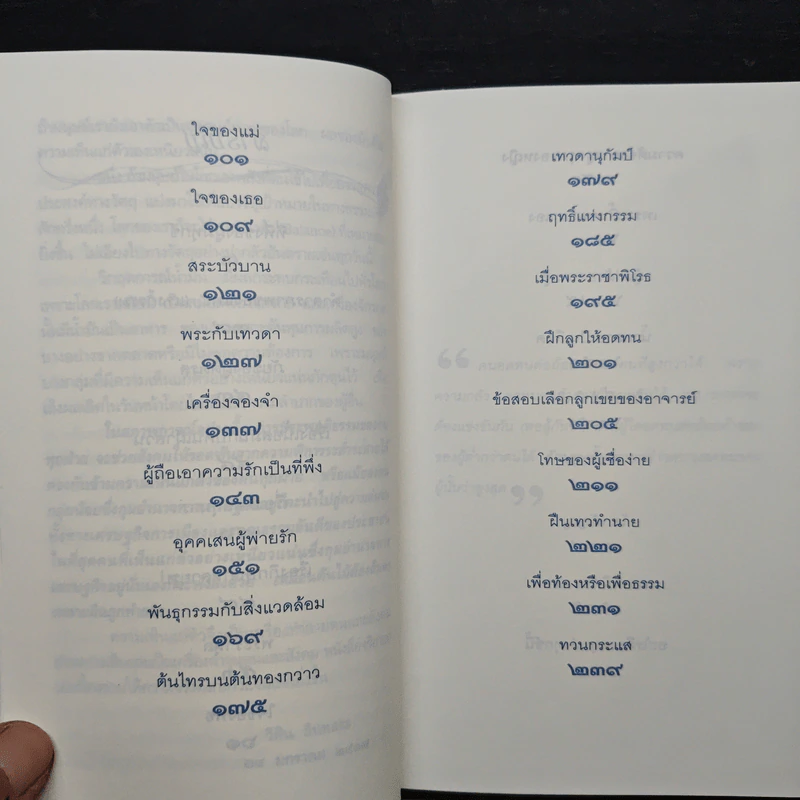 ใจของแม่
๑๐๑
ใจของเธอ
๑๐๙
สระบัวบาน
๑๒๑
พระกับเทวดา
๑๒๗
เครื่องจองจำ
๑๓๗
ผู้ถือเอาความรักเป็นที่พึ่ง
๑๔๓
อุคคเสนผู้พ่ายรัก
๑๕๑
พันธุกรรมกับสิ่งแวดล้อม
๑๖๙
ต้นไทรบนต้นทองกวาว
๑๗๕
เทวดานุกัมป์
๑๗๙
ฤทธิ์แห่งกรรม
๑๘๕
เมื่อพระราชาพิโรธ
๑๙๕
ฝึกลูกให้อดทน
๒๐๑
ข้อสอบเลือกลูกเขยของอาจารย์
๒๐๕
โทษของผู้เชื่อง่าย
๒๑๑
ฝืนเทวทำนาย
๒๒๑
เพื่อท้องหรือเพื่อธรรม
๒๓๑
ทวนกระแส
๒๓๙